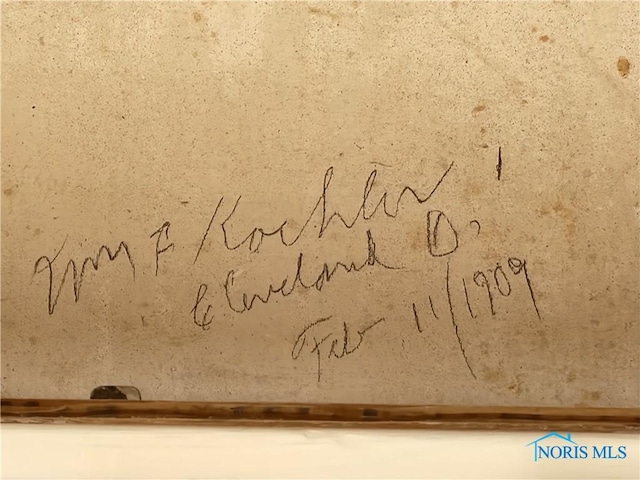 Wm F Koehler
Cleveland O.
Feb 11/1909
NORIS MLS